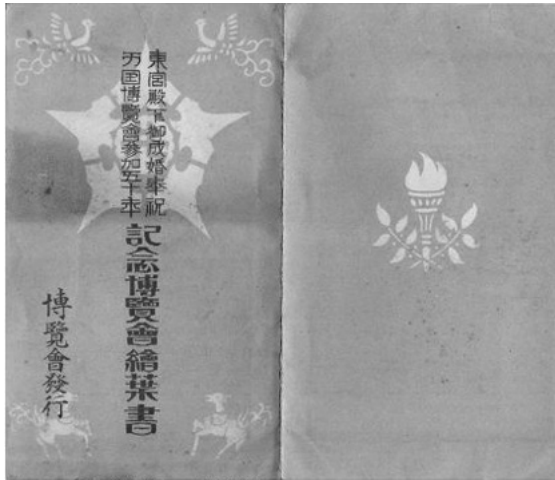 東宮殿下御成婚奉祝
万国博覧會参加五十年
記念博覧會繪葉書
博覧會發行